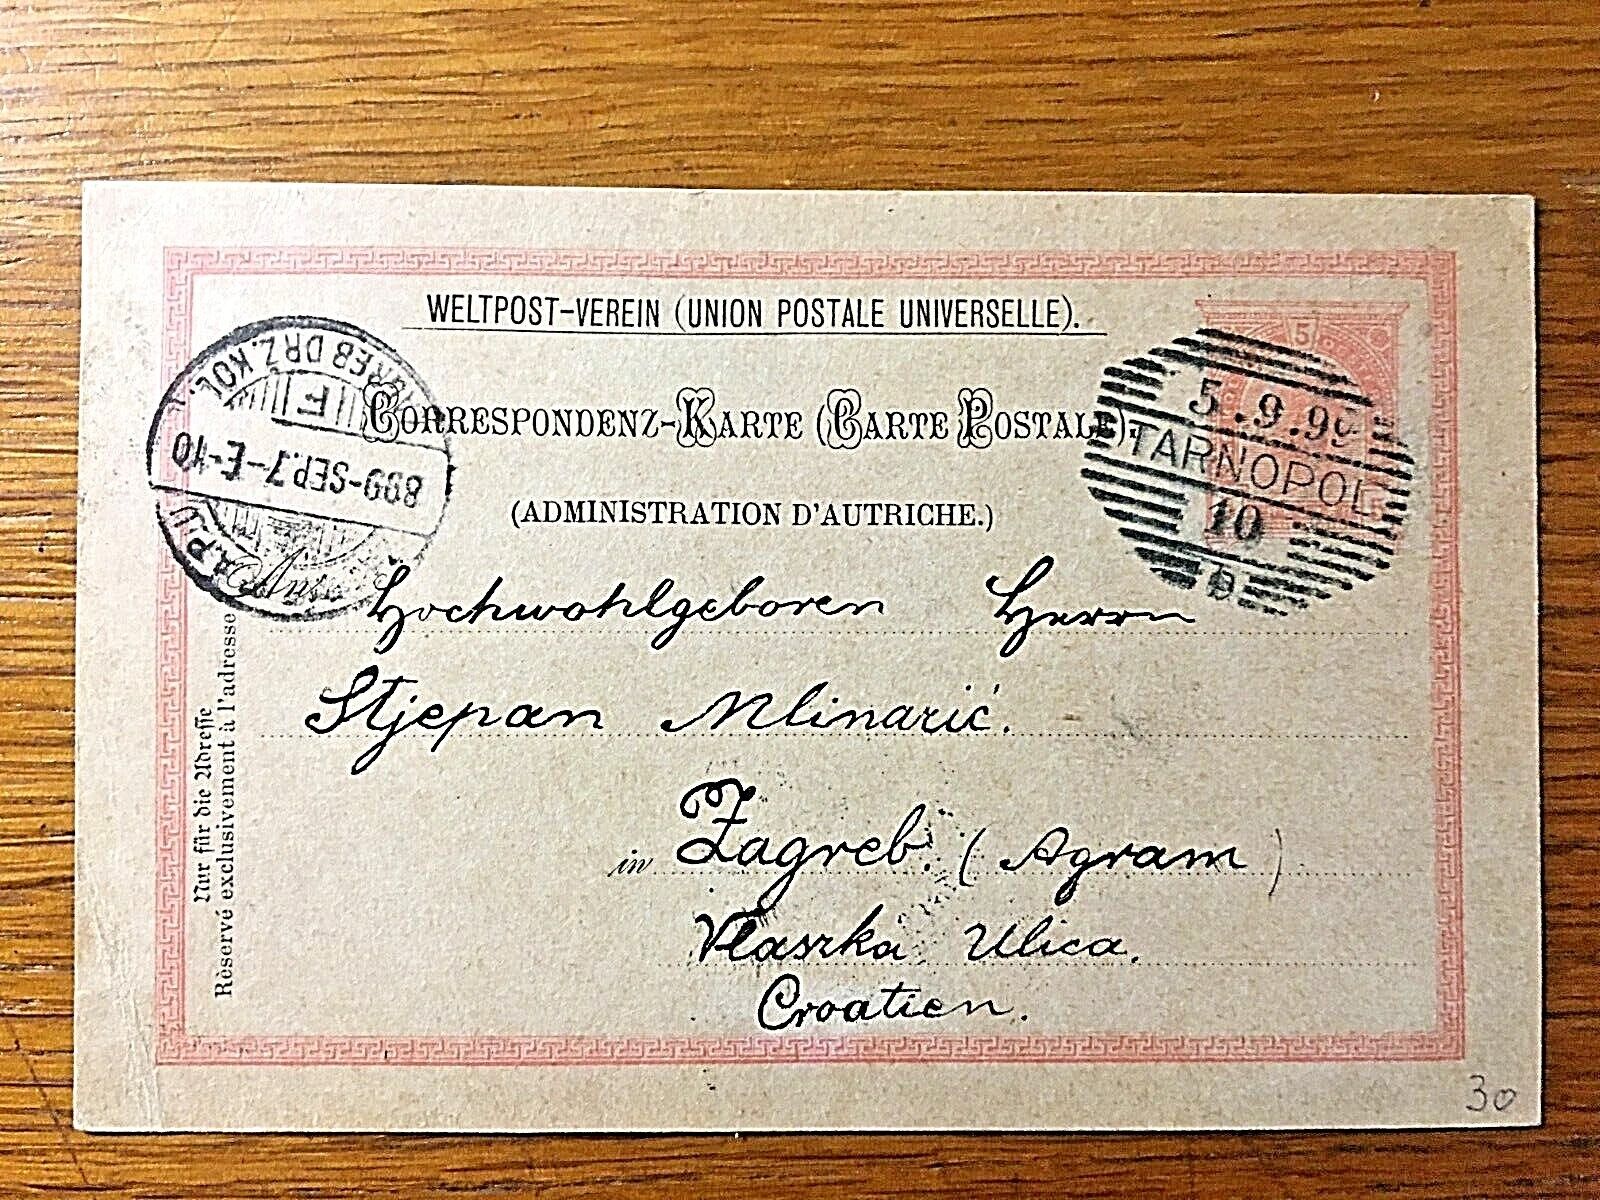 WELTPOST-VEREIN (UNION POSTALE UNIVERSELLE).
CORRESPONDENZ-KARTE (CARTE POSTALE).
(ADMINISTRATION D'AUTRICHE.)
5
5.9.99
TARNOPOL
10
ZAGREB DRZ. KOL.
F
899-SEP.7-E-10
Hochwohlgeboren Herrn
Stjepan Mlinarić.
in Zagreb. (Agram)
Vlaszka Ulica.
Croatien.
Nur für die Adresse
Réservé exclusivement à l'adresse
30